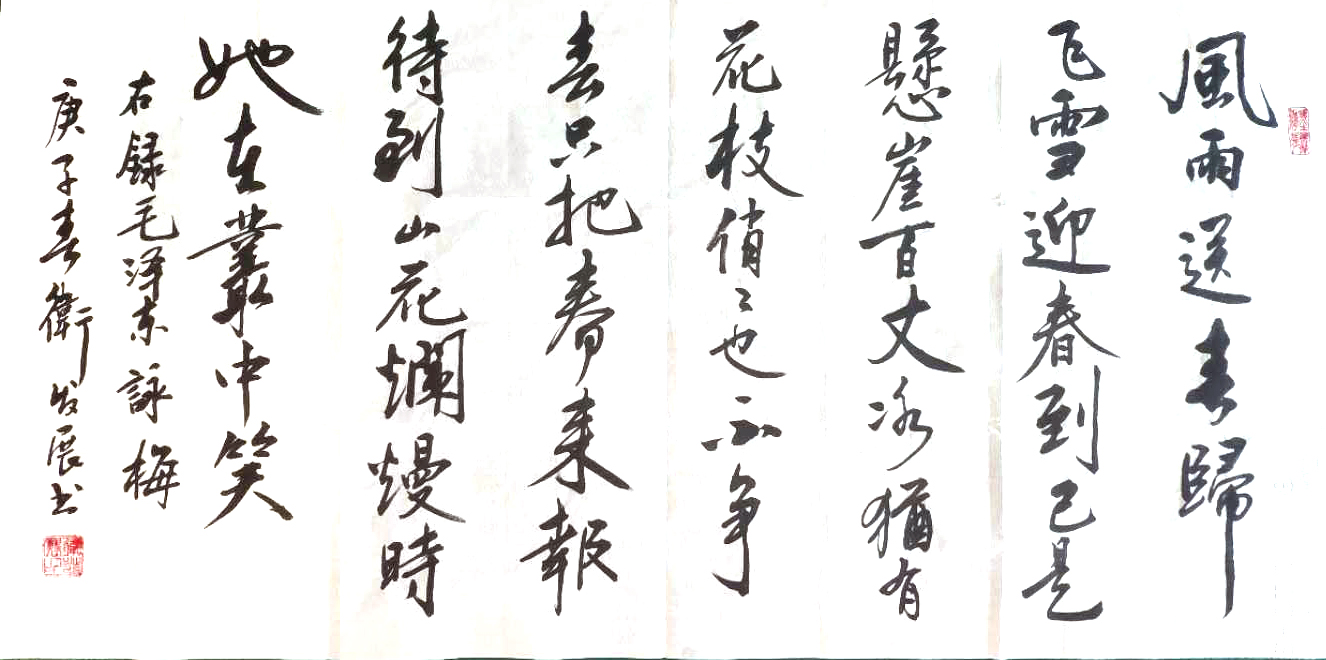 風雨送春歸
飞雪迎春到已是
懸崖百丈冰猶有
花枝俏〻也不争
春只把春来報
待到山花爛熳時
她在叢中笑
右録毛泽东詠梅
庚子春衛发展书